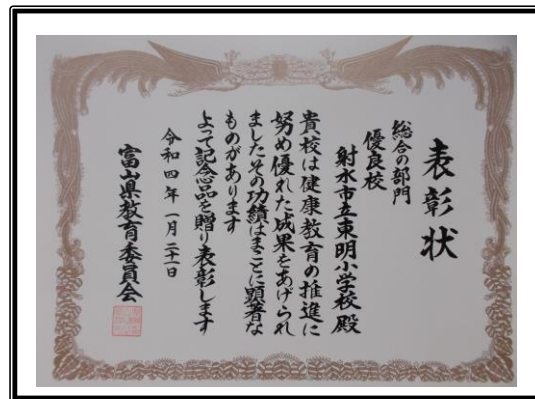 表彰状
総合の部門
優良校
射水市立東明小学校殿
貴校は健康教育の推進に
努め優れた成果をあげられ
ましたその功績はまことに顕著な
ものがあります
よって記念品を贈り表彰します
令和四年一月二十一日
富山県教育委員会